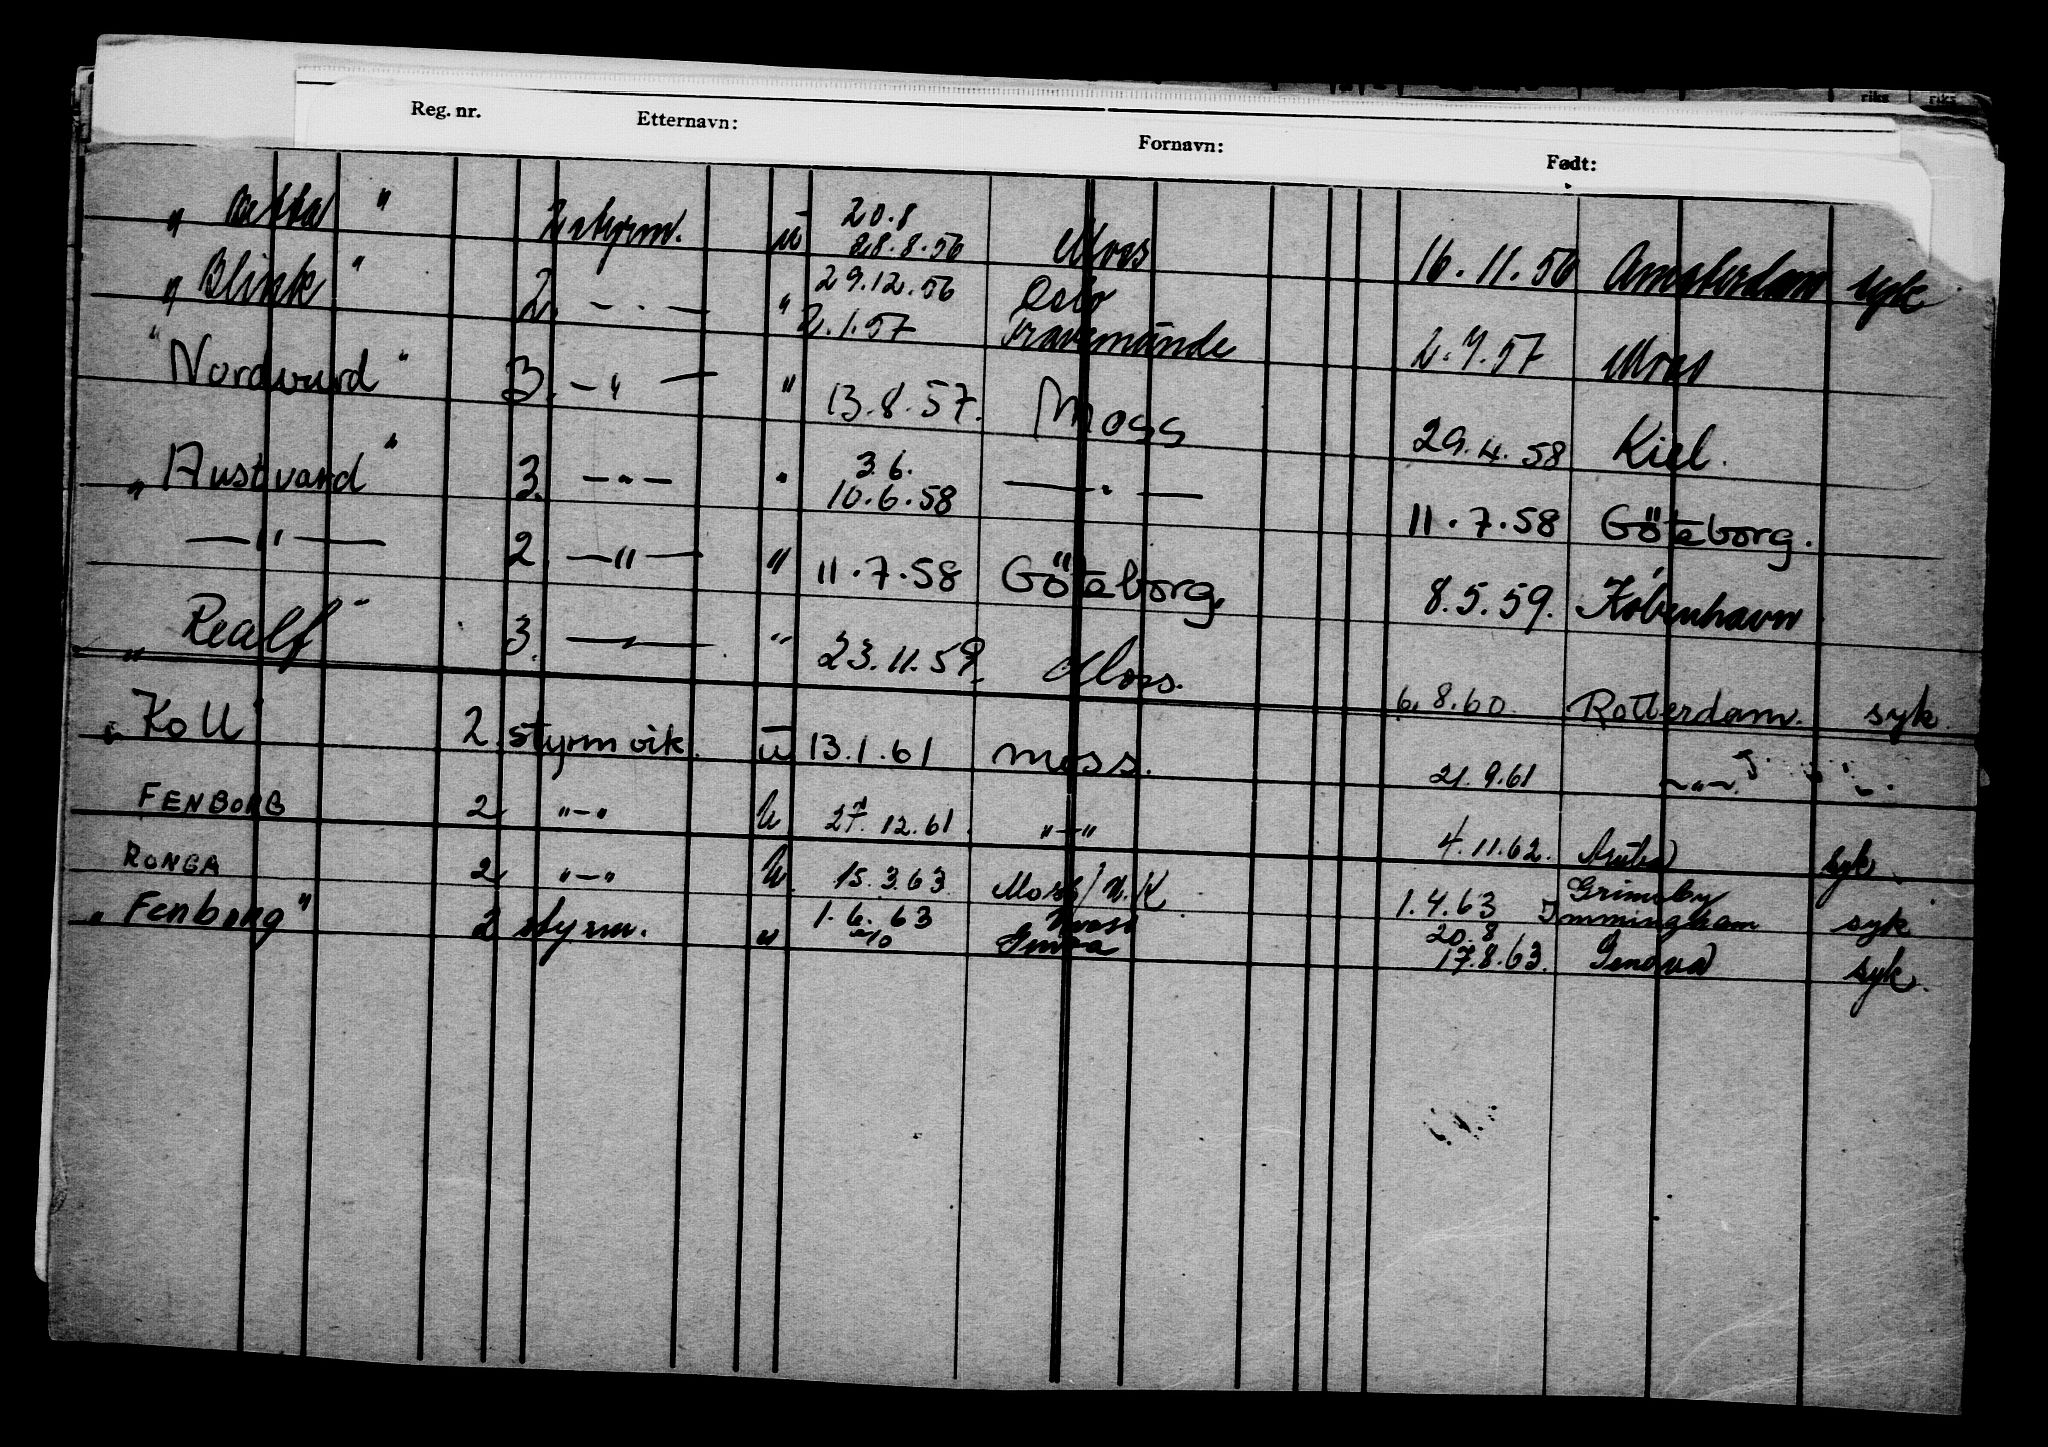 riks riks
Reg. nr. Etternavn: Fornavn: Født:
" " 2 styrm. ū 20.8 28.8.56 Moss 16.11.56 Amsterdam syk
" Blink " 2. — . — " 29.12.56 Oslo
2.1.57 Travemünde 2.7.57 Moss
" Nordvard " 3. — " — " 13.8.57. Moss 29.4.58 Kiel.
" Austvard " 3. — " — " 3.6. 10.6.58 — " — 11.7.58 Göteborg.
— " — 2. — " — " 11.7.58 Göteborg. 8.5.59. København
" Realf " 3. — " — " 23.11.59 Moss. 6.8.60. Rotterdam. syk.
" Koll " 2. styrm vik. ū 13.1.61 moss. 21.9.61 — " —
FENBORG 2 " — " u 27.12.61. " — " 4.11.62. Aruba syk.
RONGA 2 " — " u. 15.3.63. Moss/N.K 1.4.63 Grimsby Immingham syk
" Fenborg " 2 styrm. u 1.6.63 Moss Genova 20.8 17.8.63. Genova syk.